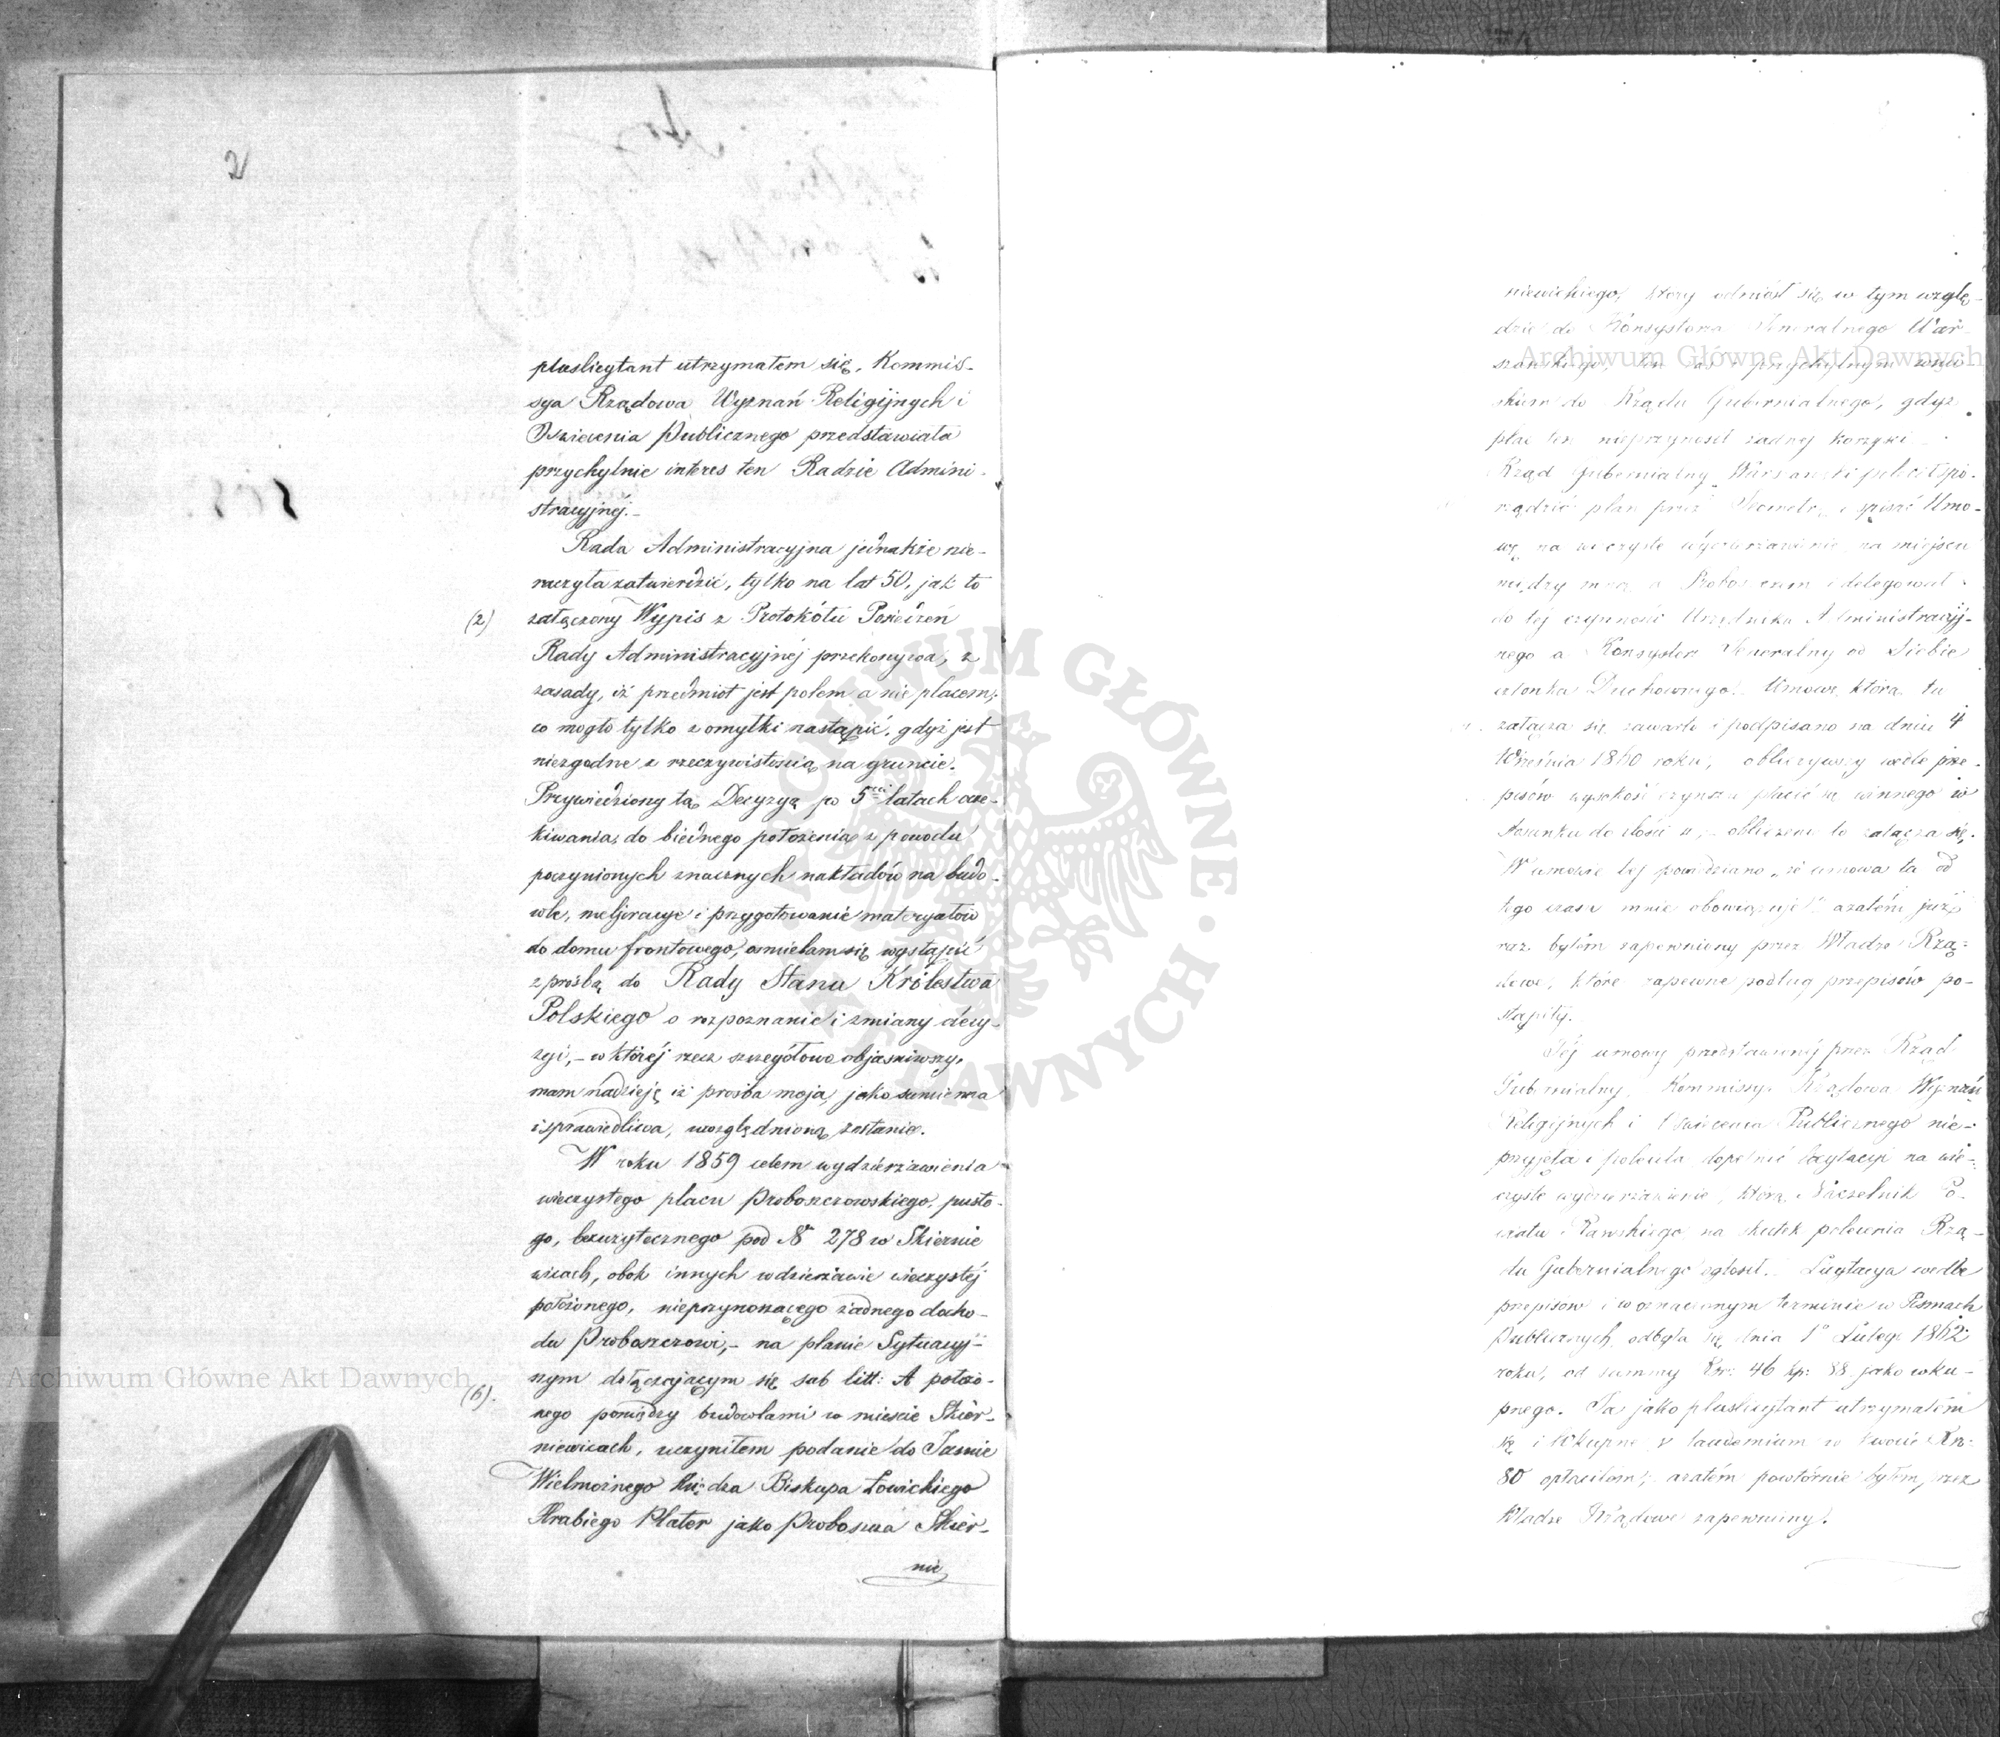 2
pluslicytant utrzymałem się, Kommis-
sya Rządowa Wyznań Religijnych i
Oświecenia Publicznego przedstawiała
przychylnie interes ten Radzie Admini-
stracyjnéj.
Rada Administracyjna jednakże nie-
raczyła zatwierdzić, tylko na lat 50, jak to
(2) załączony Wypis z Protokółu Posiedzeń
Rady Administracyjnéj przekonywa, z
zasady, iż przedmiot jest polem a nie placem;
co mogło tylko z omyłki nastąpić, gdyż jest
niezgodne z rzeczywistością na gruncie.
Przywiedziony tą Decyzyą po 5ciu latach ocze-
kiwania, do biednego położenia z powodu
poczynionych znacznych nakładów na budo-
wle, meljoracye i przygotowanie materyałów
do domu frontowego, ośmielam się wystąpić
z prośbą do Rady Stanu Królestwa
Polskiego o rozpoznanie i zmiany decy-
zyi,- w któréj rzecz szczegółowo objaśniwszy,
mam nadzieję iż prośba moja, jako sumienna
i sprawiedliwa, uwzględnioną zostanie.
W roku 1859 celem wydzierżawienia
wieczystego placu Proboszczowskiego, puste-
go, bezużytecznego pod N 278 w Skiernie
wicach, obok innych w dzierżawie wieczystéj
położonego, nieprzynoszącego żadnego docho-
du Proboszczowi,- na planie Sytuacyj-
nym dołączającym się sub litt: A położo-
(6). nego pomiędzy budowlami w mieście Skier-
niewicach, uczyniłem podanie do Jaśnie
Wielmożnego Księdza Biskupa Łowickiego
Hrabiego Plater jako Proboszcza Skier-
nie
niewickiego, który odniósł się w tym wzglę-
dzie do Konsystorza Generalnego War-
szawskiego, ten zaś przychylnym wnio
skiem do Rządu Gubernialnego, gdyż
plac ten nieprzynosił żadnej korzyści
Rząd Gubernialny Warszawski polecił spo-
rządzić plan przez Geometrę i spisać Umo-
wę na wieczyste wydzierżawienie na miejscu
między mną a Proboszczem i delegował
do téj czynności Urzędnika Administracyj-
nego a Konsystorz Generalny od Siebie
członka Duchownego. Umowę, która tu
załącza się, zawarto i podpisano na dniu 4
Września 1860 roku, obliczywszy wedle prze-
pisów wysokość czynszu płacić się winnego w
stosunku do ilości obliczenie to załącza się.
W umowie téj powiedziano „że umowa ta od
tego czasu mnie obowiązuje" azatém już
raz byłem zapewniony przez Władze Rzą-
dowe, które zapewne podług przepisów po-
stąpiły.
Téj umowy przedstawionéj przez Rząd
Gubernialny, Kommissya Rządowa Wyznań
Religijnych i Oświecenia Publicznego nie-
przyjęła i poleciła dopełnić licytacyi na wie-
czyste wydzierżawienie, którą Naczelnik Po-
wiatu Rawskiego na skutek polecenia Rzą-
du Gubernialnego ogłosił. Licytacya wedle
przepisów i w oznaczonym terminie w Pismach
Publicznych, odbyła się dnia 1o Lutego 1862
roku, od summy Rsr: 46 kp: 88 jako wku-
pnego. Ja jako pluslicytant utrzymałem
się i Wkupne z laudemium w kwocie Rsr:
80 opłaciłem; azatém powtórnie byłem przez
Władze Rządowe zapewniony.
Archiwum Główne Akt Dawnych
Archiwum Główne Akt Dawnych
ARCHIWUM GŁÓWNE · AKT DAWNYCH ·